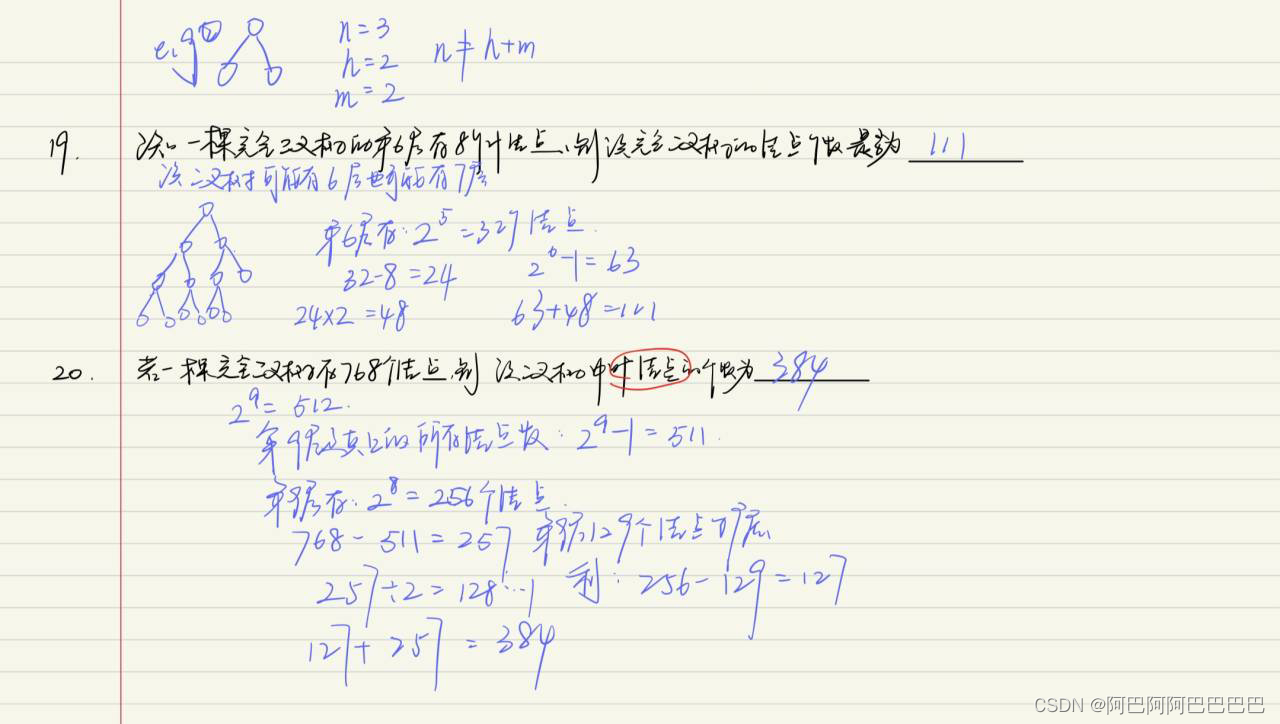 e.g② n=3
h=2 n≠h+m
m=2
19. 设一棵完全二叉树的第6层有8个叶结点,则该完全二叉树的结点个数最多为 111
该二叉树可能有6层也可能有7层
第6层有:2^5=32个结点.
32-8=24 2^6-1=63
24×2=48 63+48=111
20. 若一棵完全二叉树有768个结点,则该二叉树中叶结点的个数为 384
2^9=512.
第9层及其上的所有结点数:2^9-1=511.
第9层有:2^8=256个结点.
768-511=257 第9层129个结点有
257÷2=128…1 剩:256-129=127
127+257=384
CSDN @阿巴阿阿巴巴巴巴